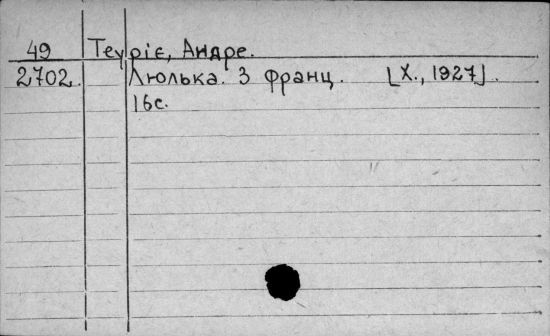 49 Теуріє, Андре.
2702 Люлька. З франц. [Х., 1927].
16с.